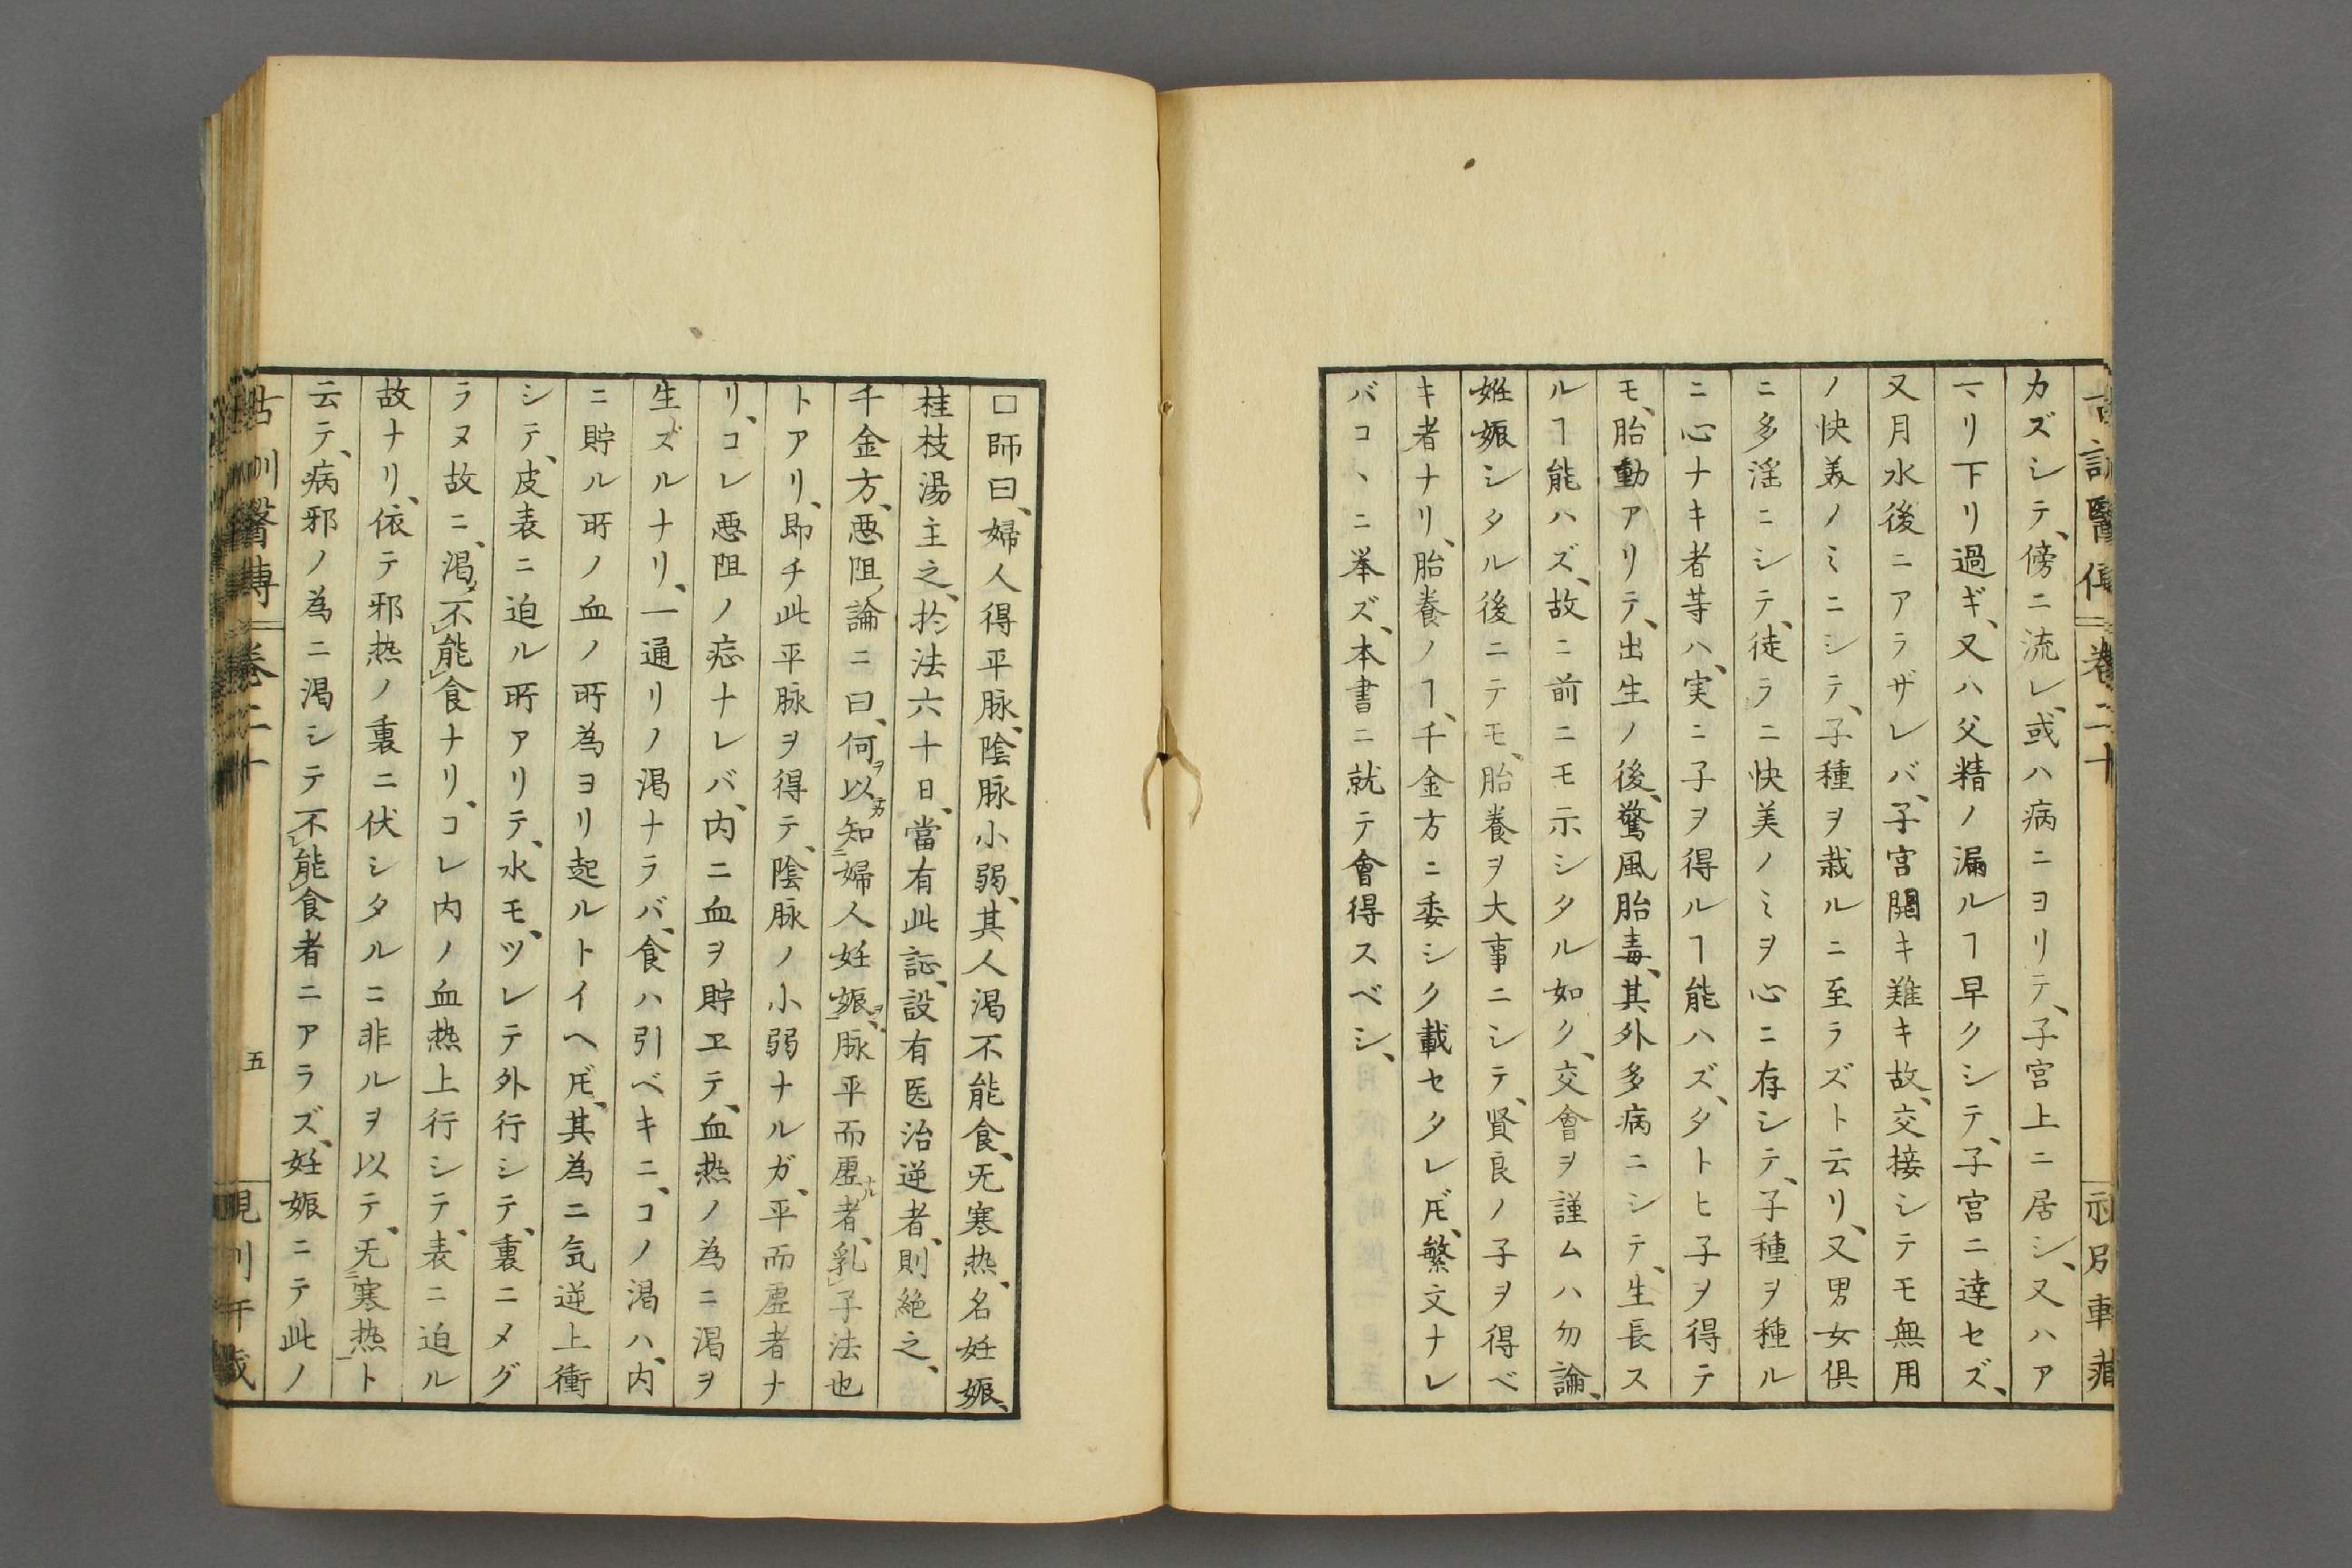 カズシテ、傍ニ流レ、或ハ病ニヨリテ、子宮上ニ居シ、又ハア
マリ下リ過ギ、又ハ父精ノ漏ルヿ早クシテ、子宮ニ達セズ、
又月水後ニアラザレバ、子宮開キ難キ故、交接シテモ無用
ノ快美ノミニシテ、子種ヲ栽ルニ至ラズト云リ、又男女俱
ニ多淫ニシテ、徒ラニ快美ノミヲ心ニ存シテ、子種ヲ種ル
ニ心ナキ者等ハ、実ニ子ヲ得ルヿ能ハズ、タトヒ子ヲ得テ
モ、胎動アリテ、出生ノ後、驚風胎毒、其外多病ニシテ、生長ス
ルヿ能ハズ、故ニ前ニモ示シタル如ク、交會ヲ謹ムハ勿論、
姙娠シタル後ニテモ、胎養ヲ大事ニシテ、賢良ノ子ヲ得ベ
キ者ナリ、胎養ノヿ、千金方ニ委シク載セタレ𪜈、繁文ナレ
バコヽニ挙ズ、本書ニ就テ會得スベシ、
□師曰、婦人得平脉、陰脉小弱、其人渇不能食、无寒热、名妊娠、
桂枝湯主之、於法六十日、當有此証、設有医治逆者、則絶之、
千金方、悪阻論ニ曰、何ヲ以カ知二婦人妊娠一ヲ、脉平而虚ナル者、乳レ子法也
トアリ、即チ此平脉ヲ得テ、陰脉ノ小弱ナルガ、平而虚者ナ
リ、コレ悪阻ノ症ナレバ、内ニ血ヲ貯ヱテ、血热ノ為ニ渇ヲ
生ズルナリ、一通リノ渇ナラバ、食ハ引ベキニ、コノ渇ハ、内
ニ貯ル所ノ血ノ所為ヨリ起ルトイヘ𪜈、其為ニ気逆上衝
シテ、皮表ニ迫ル所アリテ、水モ、ツレテ外行シテ、裏ニメグ
ラヌ故ニ、渇シ不レ能レ食ナリ、コレ内ノ血热上行シテ、表ニ迫ル
故ナリ、依テ邪热ノ裏ニ伏シタルニ非ルヲ以テ、无二寒热一ト
云テ、病邪ノ為ニ渇シテ不レ能レ食者ニアラズ、妊娠ニテ此ノ
古訓醫傳 卷二十 五